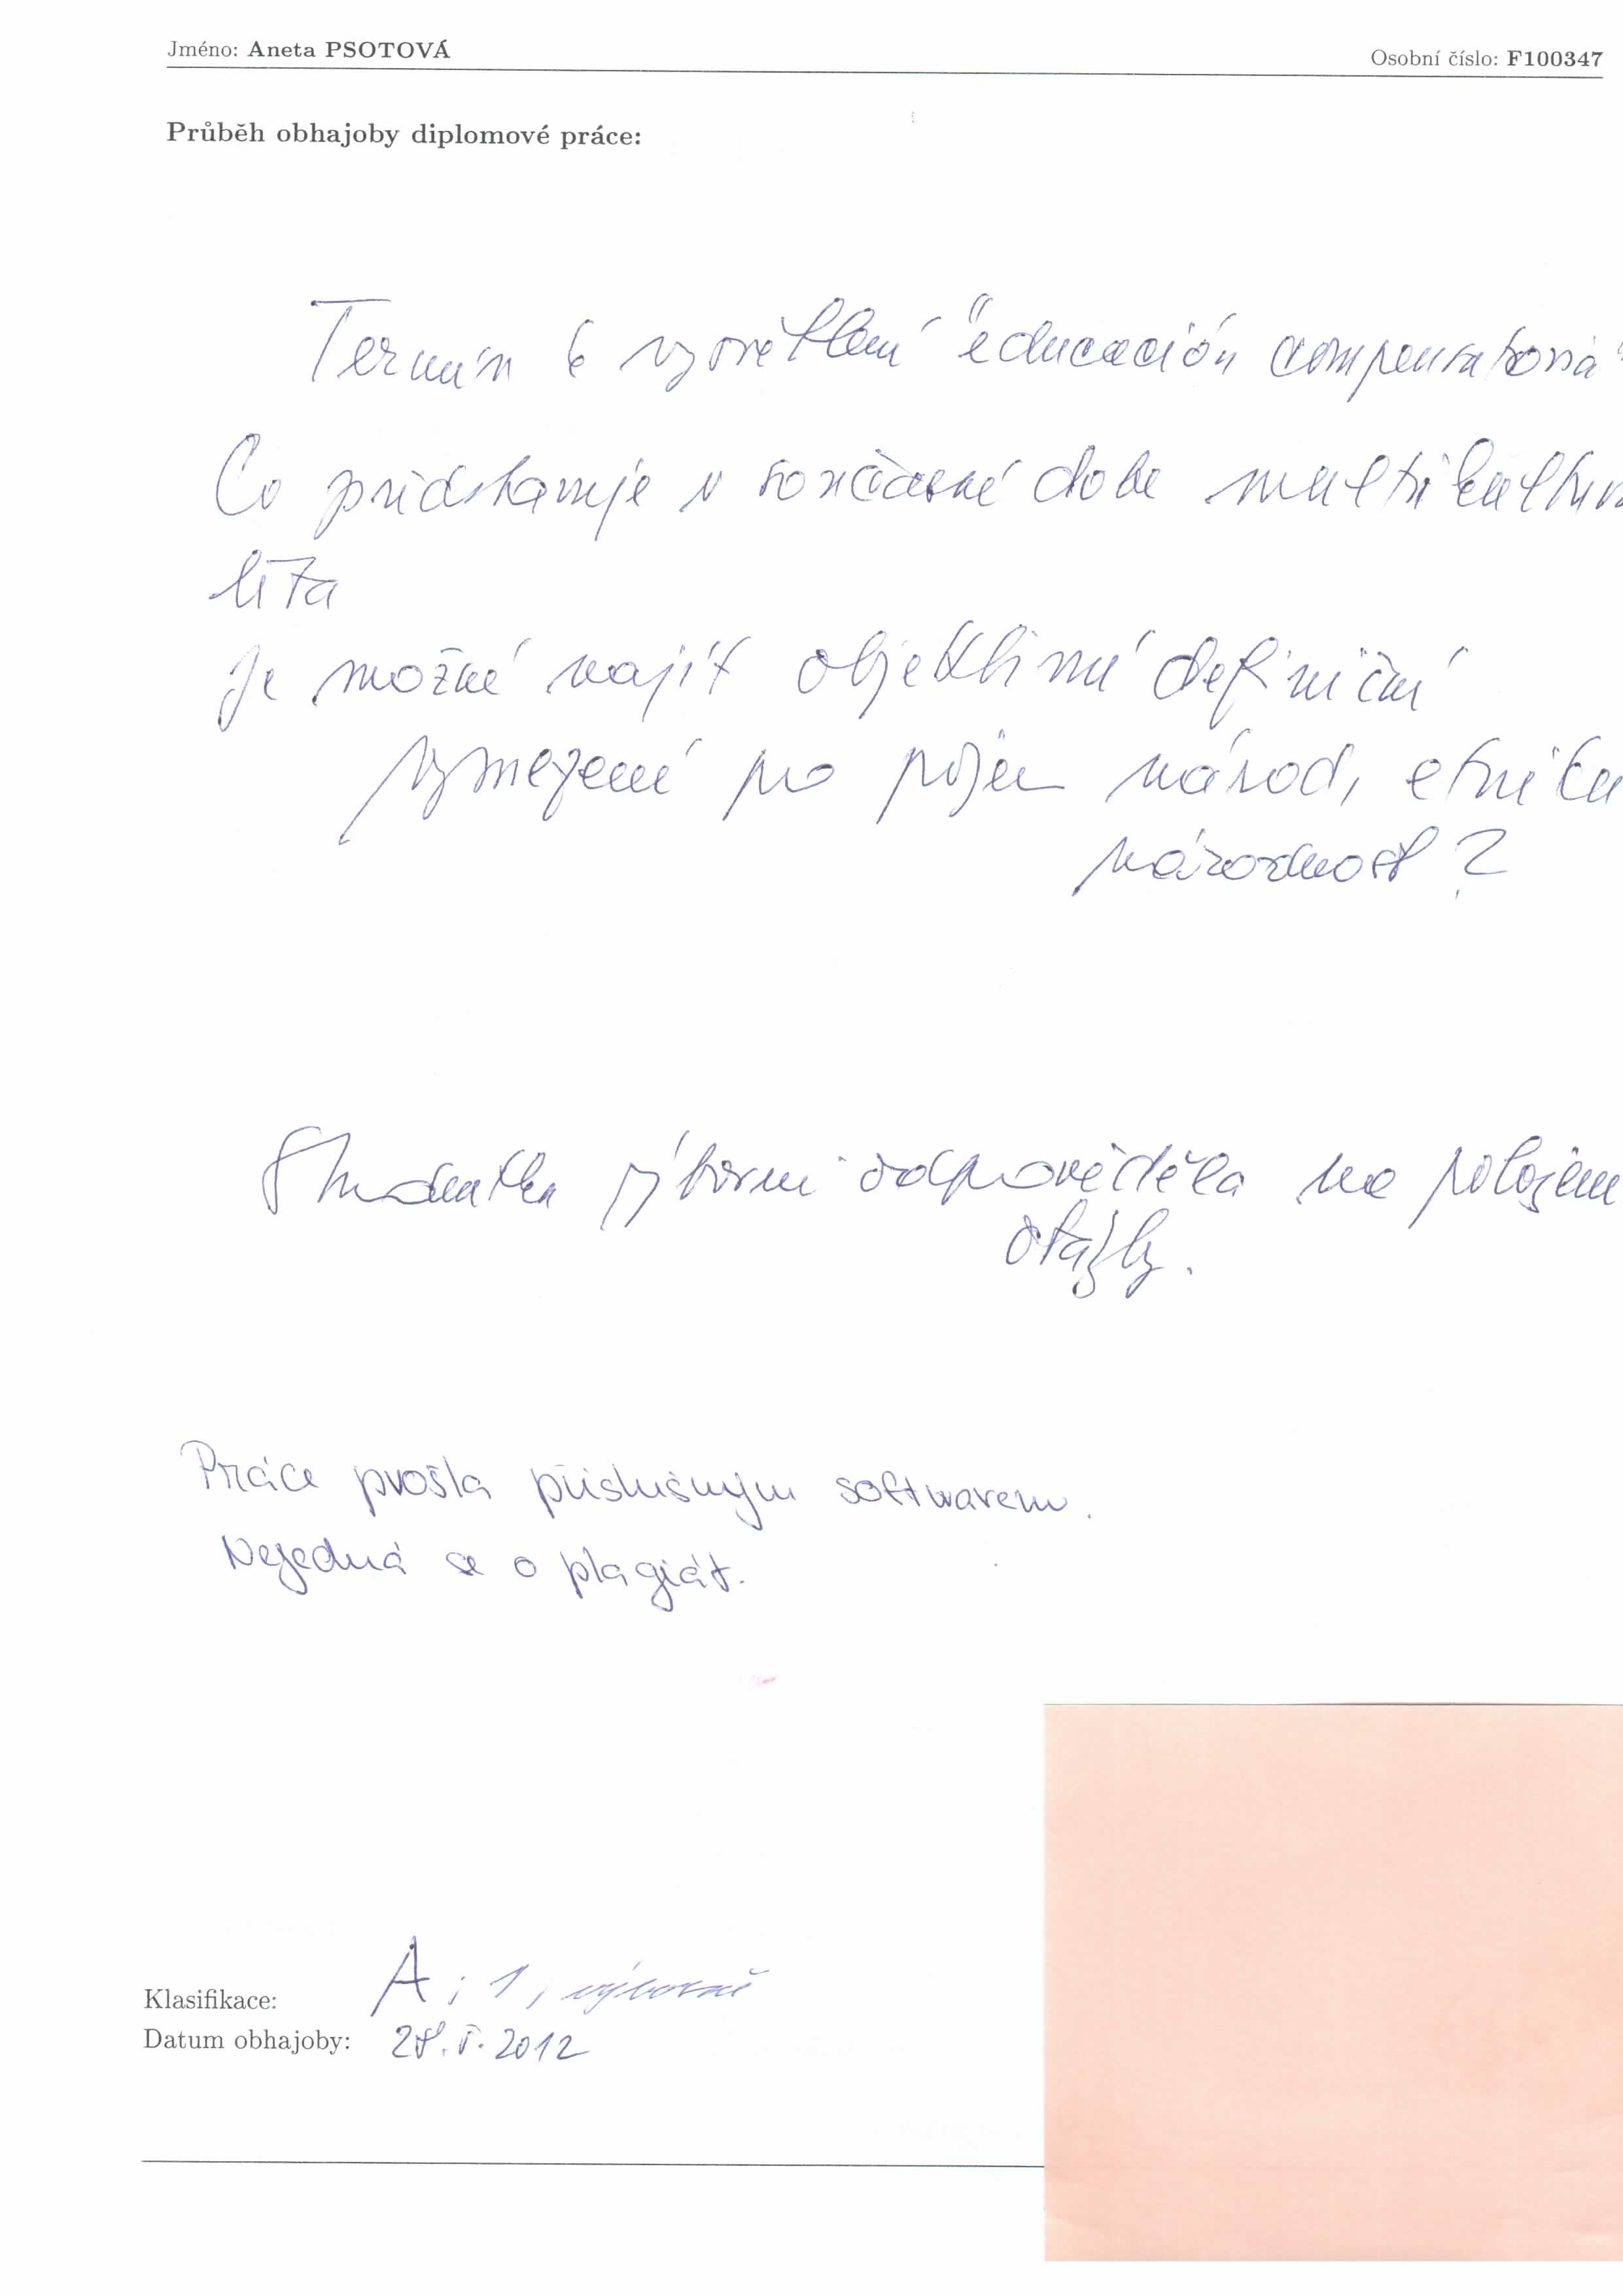 Jméno: Aneta PSOTOVÁ
Osobní číslo: F100347
Průběh obhajoby diplomové práce:
Termín k vysvětlení "educación compensatoria"
Co představuje v současné době multikultura
lita
Je možné najít objektivní definiční
vymezení pro pojem národ, etnika
národnost?
Studentka výborně odpověděla na položené
otázky.
Práce prošla příslušným softwarem.
Nejedná se o plagiát.
Klasifikace: A; 1, výborně
Datum obhajoby: 28. 5. 2012